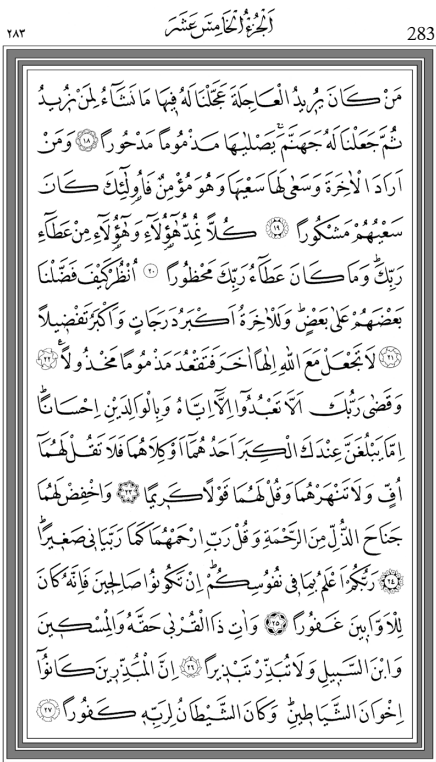 ٢٨٣ اَلْجُزْءُ الْخَامِسَ عَشَرَ 283
مَنْ كَانَ يُرِيدُ الْعَاجِلَةَ عَجَّلْنَا لَهُ فِيهَا مَا نَشَٓاءُ لِمَنْ نُرِيدُ
ثُمَّ جَعَلْنَا لَهُ جَهَنَّمَۚ يَصْلٰيهَا مَذْمُوماً مَدْحُوراً ﴿١٨﴾ وَمَنْ
اَرَادَ الْاٰخِرَةَ وَسَعٰى لَهَا سَعْيَهَا وَهُوَ مُؤْمِنٌ فَاُو۬لٰٓئِكَ كَانَ
سَعْيُهُمْ مَشْكُوراً ﴿١٩﴾ كُلاًّ نُمِدُّ هٰٓؤُ۬لَٓاءِ وَهٰٓؤُ۬لَٓاءِ مِنْ عَطَٓاءِ
رَبِّكَۜ وَمَا كَانَ عَطَٓاءُ رَبِّكَ مَحْظُوراً ﴿٢٠﴾ اُنْظُرْ كَيْفَ فَضَّلْنَا
بَعْضَهُمْ عَلٰى بَعْضٍۜ وَلَلْاٰخِرَةُ اَكْبَرُ دَرَجَاتٍ وَاَكْبَرُ تَفْضِيلاً
﴿٢١﴾ لَا تَجْعَلْ مَعَ اللّٰهِ اِلٰهاً اٰخَرَ فَتَقْعُدَ مَذْمُوماً مَخْذُولاً۟ ﴿٢٢﴾
وَقَضٰى رَبُّكَ اَلَّا تَعْبُدُٓوا اِلَّٓا اِيَّاهُ وَبِالْوَالِدَيْنِ اِحْسَاناًۜ
اِمَّا يَبْلُغَنَّ عِنْدَكَ الْكِبَرَ اَحَدُهُمَٓا اَوْ كِلَاهُمَا فَلَا تَقُلْ لَهُمَٓا
اُفٍّ وَلَا تَنْهَرْهُمَا وَقُلْ لَهُمَا قَوْلاً كَرِيماً ﴿٢٣﴾ وَاخْفِضْ لَهُمَا
جَنَاحَ الذُّلِّ مِنَ الرَّحْمَةِ وَقُلْ رَبِّ ارْحَمْهُمَا كَمَا رَبَّيَانِي صَغِيراًۜ
﴿٢٤﴾ رَبُّكُمْ اَعْلَمُ بِمَا فِي نُفُوسِكُمْۜ اِنْ تَكُونُوا صَالِحِينَ فَاِنَّهُ كَانَ
لِلْاَوَّابِينَ غَفُوراً ﴿٢٥﴾ وَاٰتِ ذَا الْقُرْبٰى حَقَّهُ وَالْمِسْكِينَ
وَابْنَ السَّبِيلِ وَلَا تُبَذِّرْ تَبْذِيراً ﴿٢٦﴾ اِنَّ الْمُبَذِّرِينَ كَانُٓوا
اِخْوَانَ الشَّيَاطِينِۜ وَكَانَ الشَّيْطَانُ لِرَبِّهِ كَفُوراً ﴿٢٧﴾